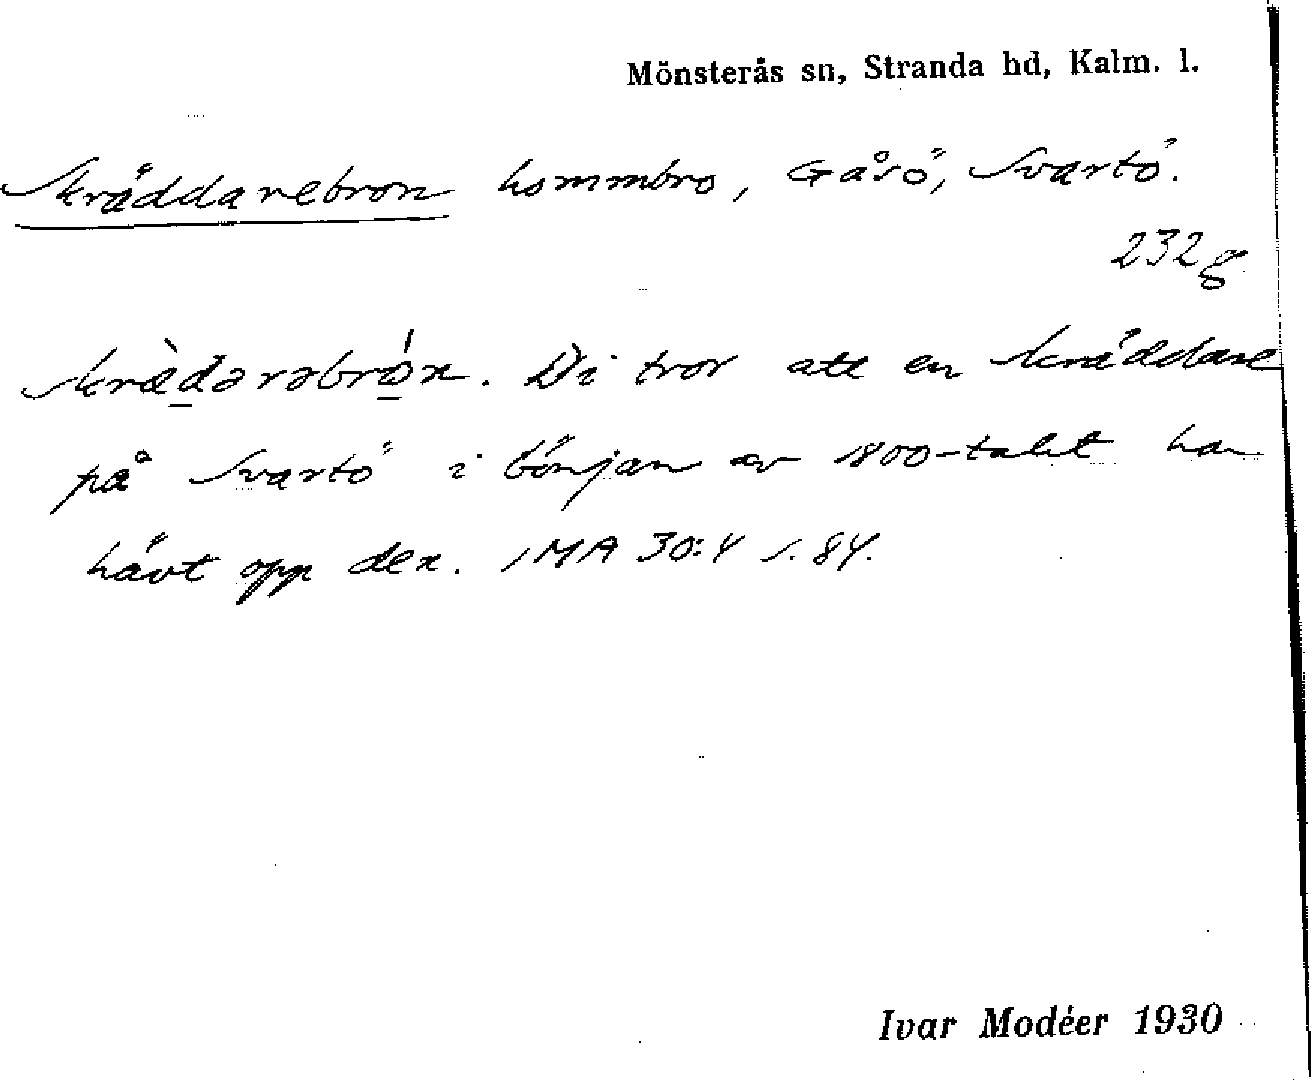 Mönsterås sn, Stranda hd, Kalm. l.
Skräddarebron hommbro, Gåsö, Svartö.
232 g
skrädarəbrón. Di tror att en skräddare
på Svartö i början av 1800-talet har
hävt opp den. IMA 30:4 s. 84.
Ivar Modéer 1930